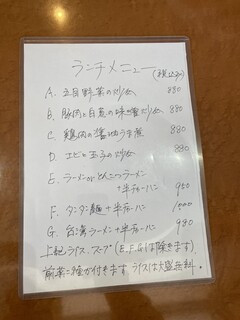 ランチメニュー
(税込み)
A. 五目野菜の炒め 880
B. 豚肉と白菜の味噌炒め 880
C. 鶏肉の醤油うま煮 880
D. エビと玉子の炒め 880
E. ラーメンorとんこつラーメン
+半チャーハン 950
F. タンタン麺+半チャーハン 1000
G. 台湾ラーメン+半チャーハン 980
上記ライス、スープ(E.F.Gは除きます)
前菜二種が付きます ライスは大盛無料.